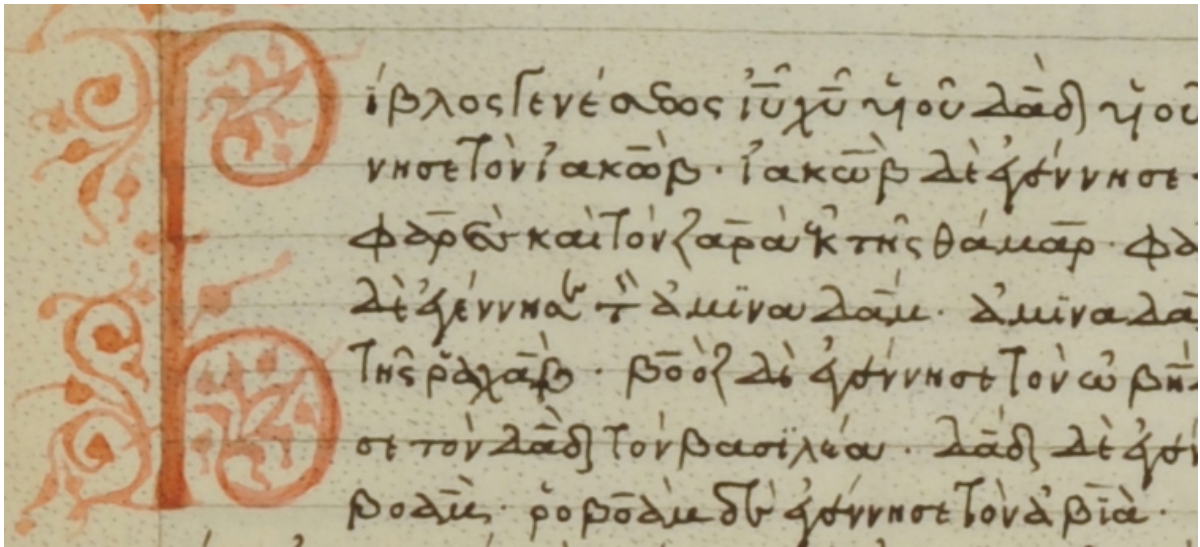 Βίβλος γενέσεως ἰῦ χῦ υἱοῦ δᾱδ υἱοῦ
νησε τὸν ἰακὼβ· ἰακὼβ δὲ ἐγέννησε
φαρὲς καὶ τὸν ζαρὰ ἐκ τῆς θάμαρ· φα
δὲ ἐγέννησε τὸν ἀμϊναδάμ· ἀμϊναδὰ
τῆς ῥαχάβ· βοὸζ δὲ ἐγέννησε τὸν ὠβὴδ
σε τὸν δᾱδ τὸν βασϊλέα· δᾱδ δὲ ἐγέν
βοάμ· ῥοβοὰμ δὲ ἐγέννησε τὸν ἀβϊά·